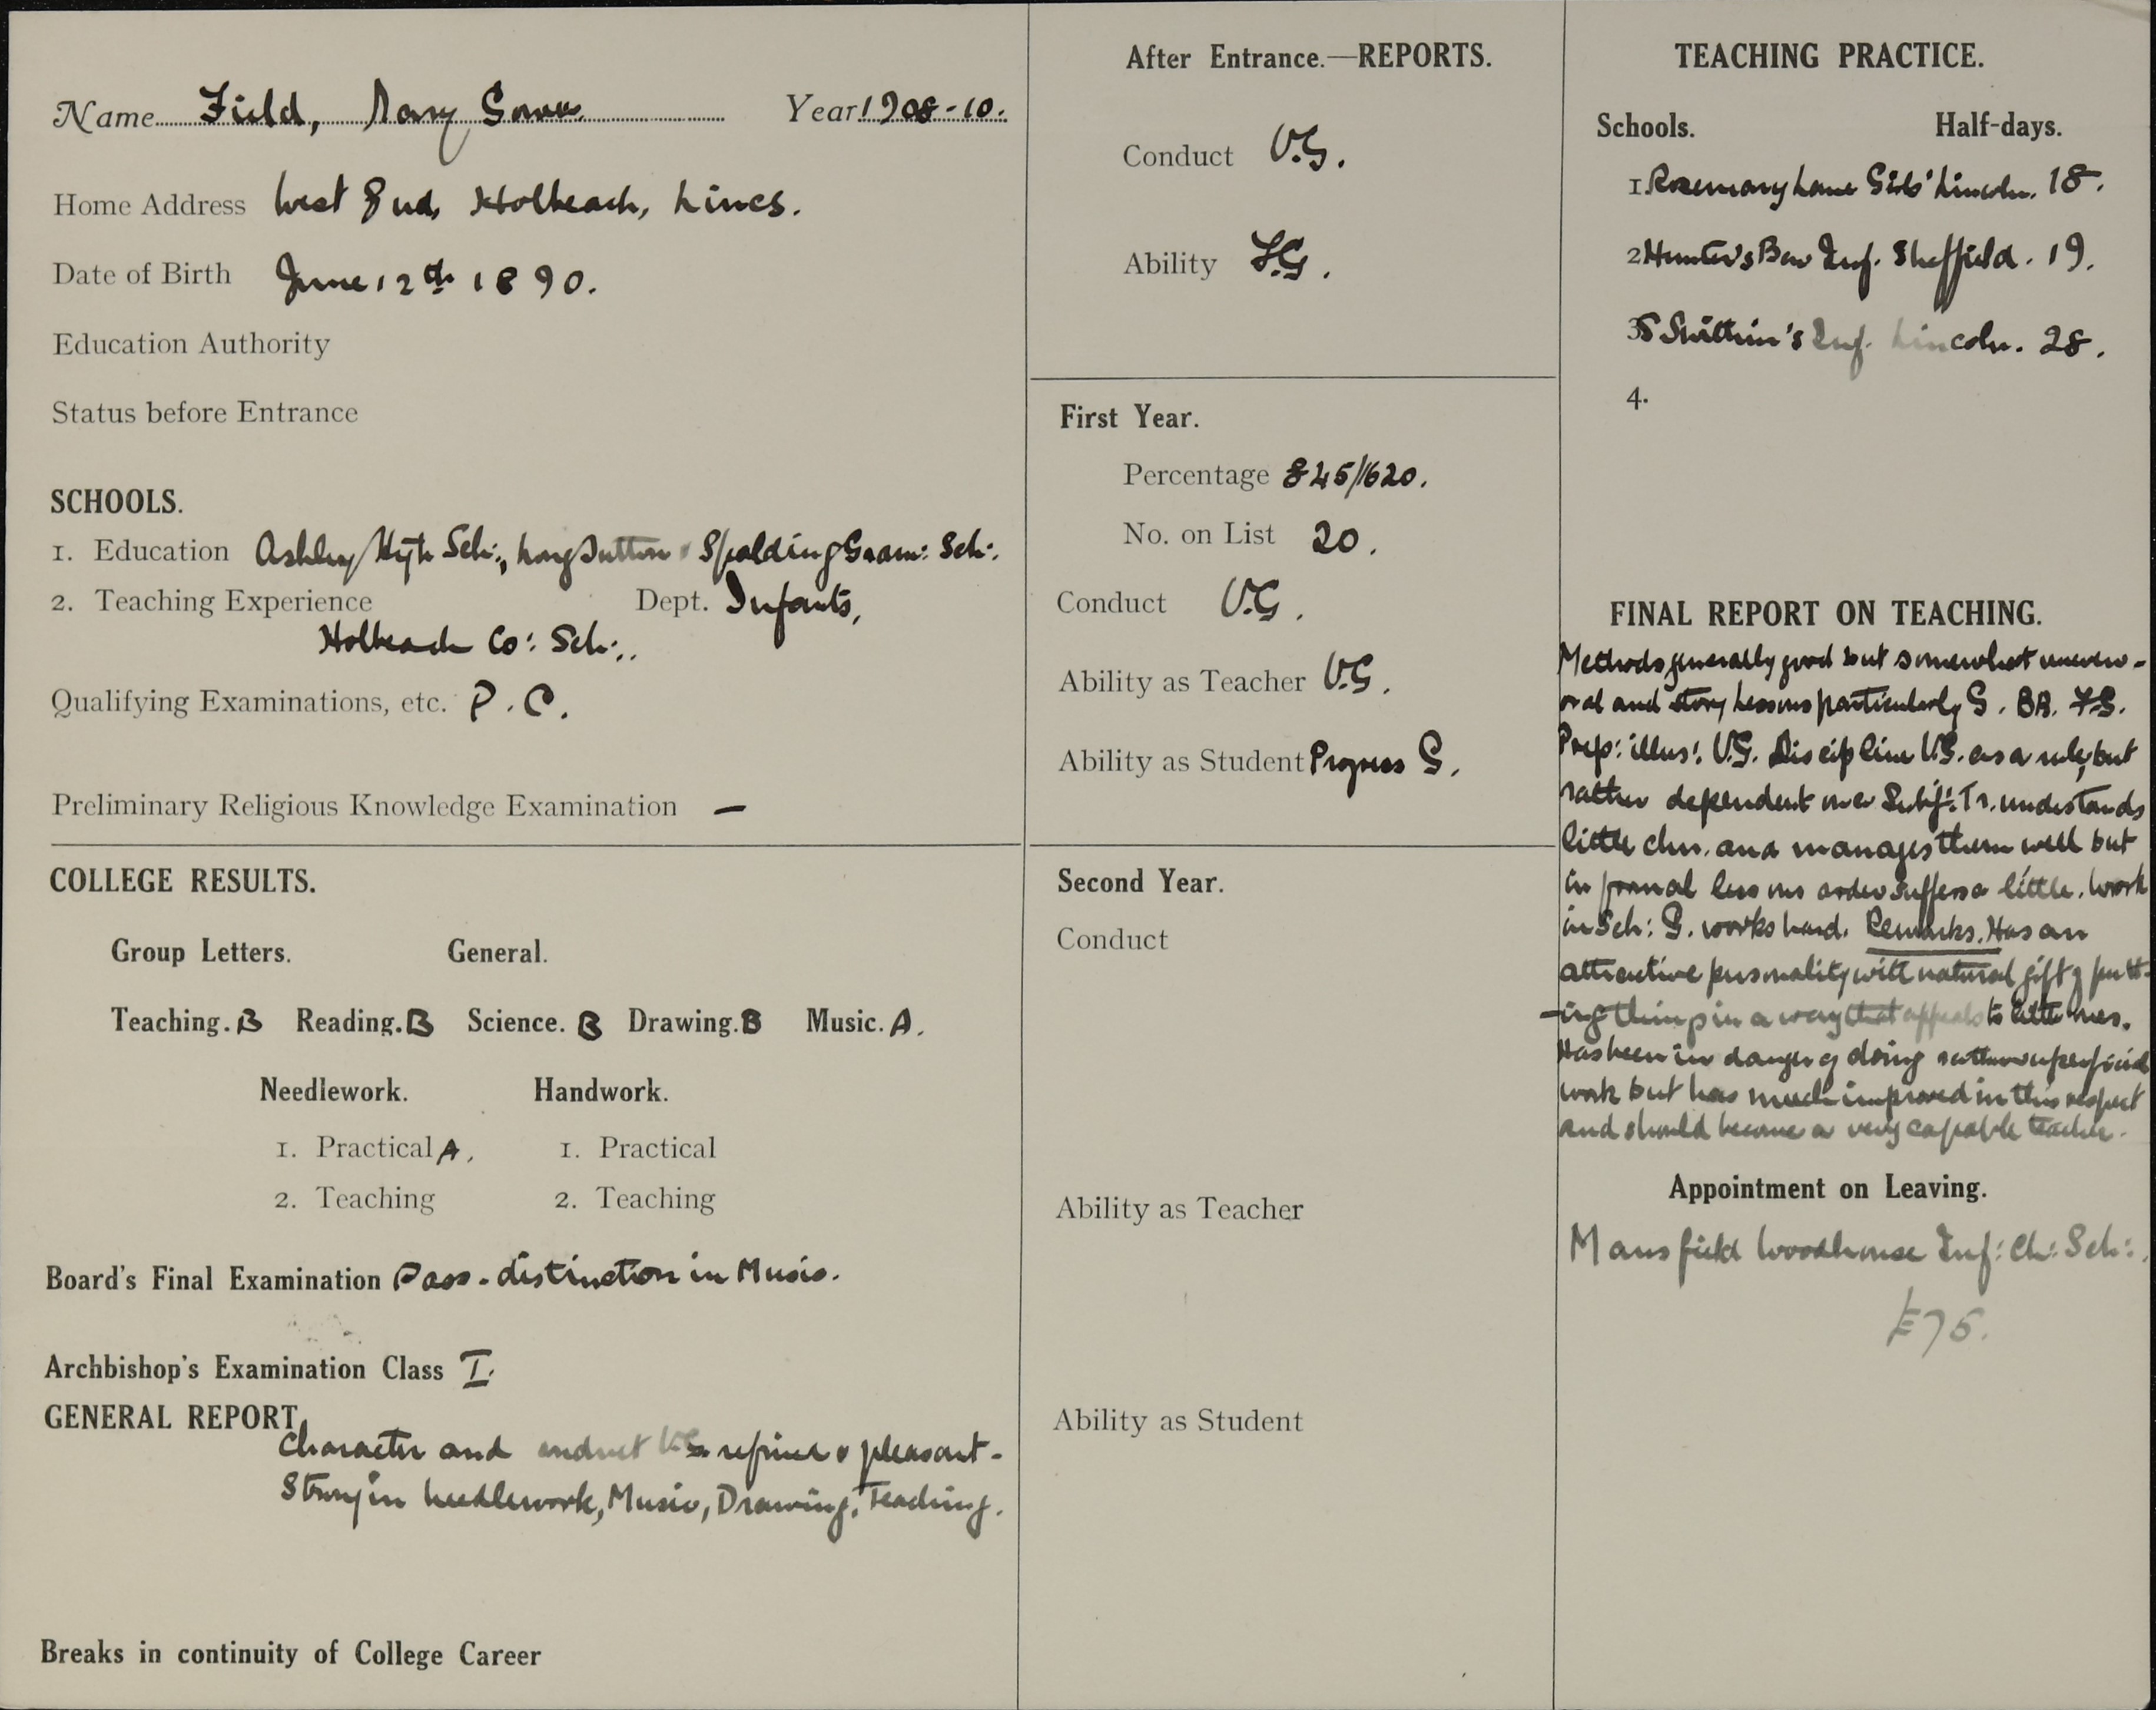 Name Field, Mary Year 1908-10.
Home Address West End, Holbeach, Lincs.
Date of Birth June 12th 1890.
Education Authority
Status before Entrance
SCHOOLS.
1. Education Ashley High Sch:, Long Sutton & Spalding Gram: Sch:
2. Teaching Experience Dept. Infants,
Holbeach Co: Sch:.
Qualifying Examinations, etc. P.C.
Preliminary Religious Knowledge Examination —
COLLEGE RESULTS.
Group Letters. General.
Teaching. B Reading. B Science. B Drawing. B Music. A.
Needlework. Handwork.
1. Practical A. 1. Practical
2. Teaching 2. Teaching
Board's Final Examination Pass - distinction in Music.
Archbishop's Examination Class I.
GENERAL REPORT
Character and conduct V.G. refined & pleasant -
Strong in Needlework, Music, Drawing, Teaching.
Breaks in continuity of College Career
After Entrance.—REPORTS.
Conduct V.G.
Ability F.G.
First Year.
Percentage 845/1620.
No. on List 20.
Conduct V.G.
Ability as Teacher V.G.
Ability as Student Progress G.
Second Year.
Conduct
Ability as Teacher
Ability as Student
TEACHING PRACTICE.
Schools. Half-days.
1. Rosemary Lane Girls' Lincoln. 18.
2 Hunter's Bar Inf. Sheffield. 19.
3 S Swithin's Inf. Lincoln. 28.
4.
FINAL REPORT ON TEACHING.
Methods generally good but somewhat uneven -
oral and story lessons particularly G. BB. F.G.
Prep: illus: V.G. Discipline V.G. as a rule, but
rather dependent on Subj: Tr. understands
little chn. and manages them well but
in formal lessons order suffers a little. Work
in Sch: G. works hard. Remarks. Has an
attractive personality with natural gift of putt-
-ing things in a way that appeals to little ones.
Has been in danger of doing rather superficial
work but has much improved in this respect
and should become a very capable teacher.
Appointment on Leaving.
Mansfield Woodhouse Inf: Ch: Sch:
£75.